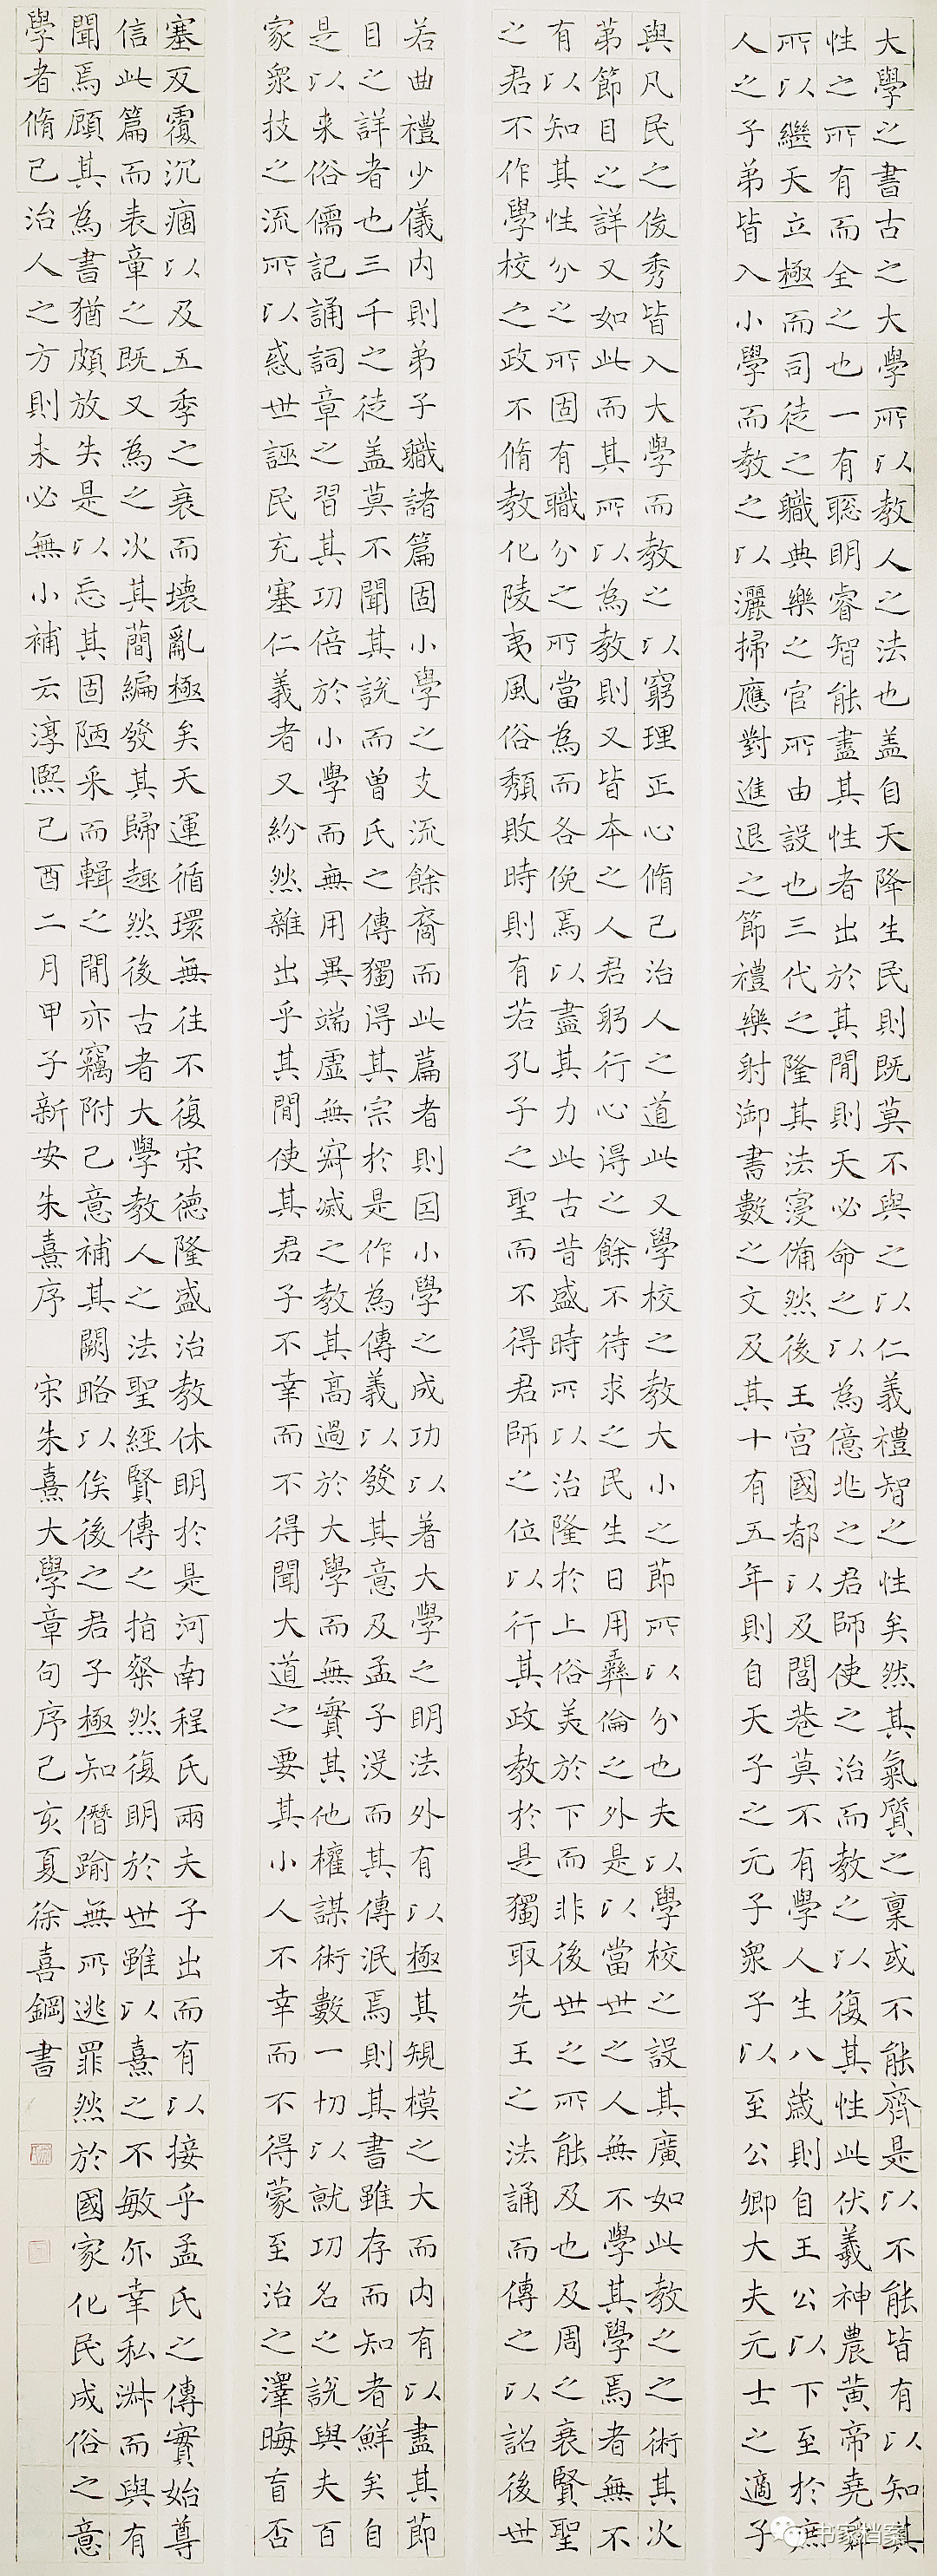 大學之書古之大學所以教人之法也盖自天降生民則既莫不與之以仁義禮智之性矣然其氣質之稟或不能齊是以不能皆有以知其
性之所有而全之也一有聡明睿智能盡其性者出於其閒則天必命之以為億兆之君師使之治而教之以復其性此伏羲神農黄帝堯舜
所以繼天立極而司徒之職典樂之官所由設也三代之隆其法寖備然後王宮國都以及閭巷莫不有學人生八歲則自王公以下至於庶
人之子弟皆入小學而教之以灑掃應對進退之節禮樂射御書數之文及其十有五年則自天子之元子眾子以至公卿大夫元士之適子
與凡民之俊秀皆入大學而教之以窮理正心脩己治人之道此又學校之教大小之節所以分也夫以學校之設其廣如此教之術其次
苐節目之詳又如此而其所以為教則又皆本之人君躬行心得之餘不待求之民生日用彞倫之外是以當世之人無不學其學焉者無不
有以知其性分之所固有職分之所當為而各俛焉以盡其力此古昔盛時所以治隆於上俗美於下而非後世之所能及也及周之衰賢聖
之君不作學校之政不脩教化陵夷風俗頽敗時則有若孔子之聖而不得君師之位以行其政教於是獨取先王之法誦而傳之以詔後世
若曲禮少儀内則弟子職諸篇固小學之支流餘裔而此篇者則因小學之成功以著大學之明法外有以極其規模之大而内有以盡其節
目之詳者也三千之徒盖莫不聞其說而曾氏之傳獨得其宗於是作為傳義以發其意及孟子没而其傳泯焉則其書雖存而知者鮮矣自
是以来俗儒記誦詞章之習其功倍於小學而無用異端虛無寂滅之教其高過於大學而無實其他權謀術數一切以就功名之說與夫百
家眾技之流所以惑世誣民充塞仁義者又紛然雜出乎其閒使其君子不幸而不得聞大道之要其小人不幸而不得蒙至治之澤晦盲否
塞反覆沉痼以及五季之衰而壞亂極矣天運循環無往不復宋德隆盛治教休明於是河南程氏兩夫子出而有以接乎孟氏之傳實始尊
信此篇而表章之既又為之次其簡編發其歸趣然後古者大學教人之法聖經賢傳之指粲然復明於世雖以熹之不敏亦幸私淑而與有
聞焉顧其為書猶頗放失是以忘其固陋采而輯之閒亦竊附己意補其闕略以俟後之君子極知僭踰無所逃罪然於國家化民成俗之意
學者脩己治人之方則未必無小補云淳熙己酉二月甲子新安朱熹序 宋朱熹大學章句序己亥夏徐喜鋼書
书家档案